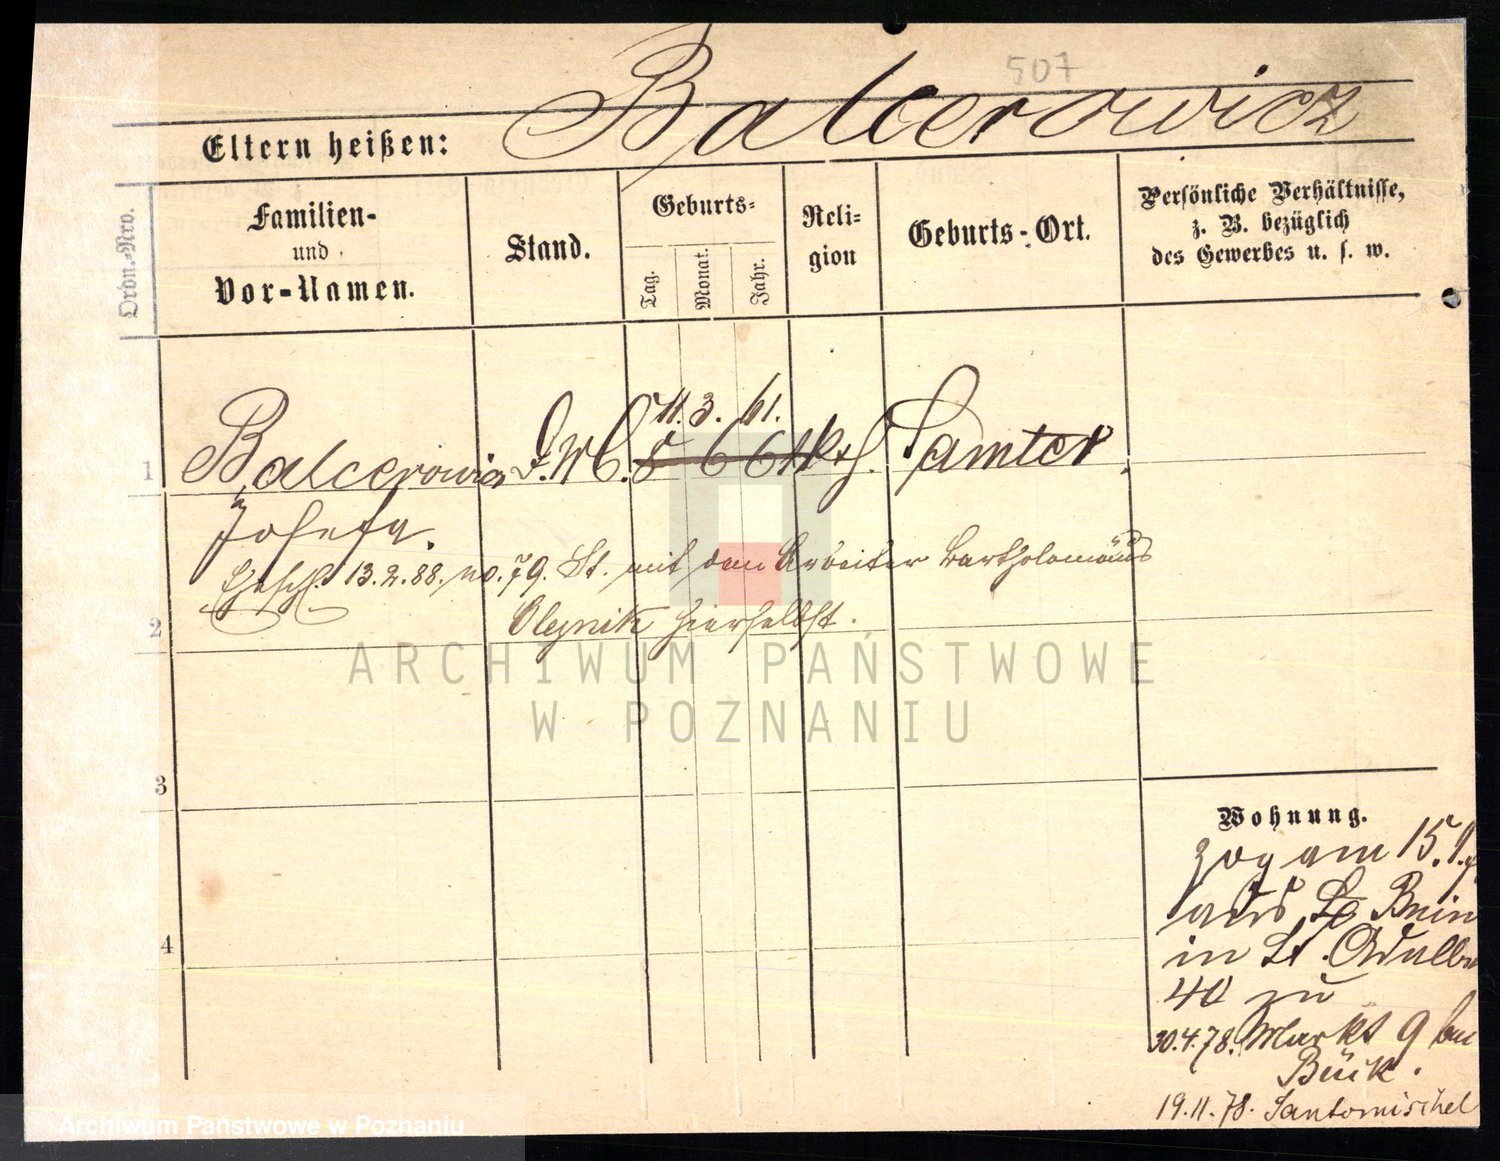 507
Balcerowicz
Eltern heißen:
Ordn.-Nro.
Familien-
und
Vor-Namen.
Stand.
Geburts-
Tag.
Monat.
Jahr.
Reli-
gion
Geburts-Ort.
Persönliche Verhältnisse,
z. B. bezüglich
des Gewerbes u. s. w.
11. 3. 61.
1 Balcerowicz 5 6 61 kth. Samter
Josefa.
13.2.88. no. 79. St. mit dem Arbeiter Bartholomäus
2 Olejnik hierselbst.
ARCHIWUM PAŃSTWOWE
W POZNANIU
3
4
Wohnung.
zog am 15.
aus Bnin
in St. Adalb
40 zu
30.4.78. Markt 9
Bück.
19.11.78. Santomischel
Archiwum Państwowe w Poznaniu